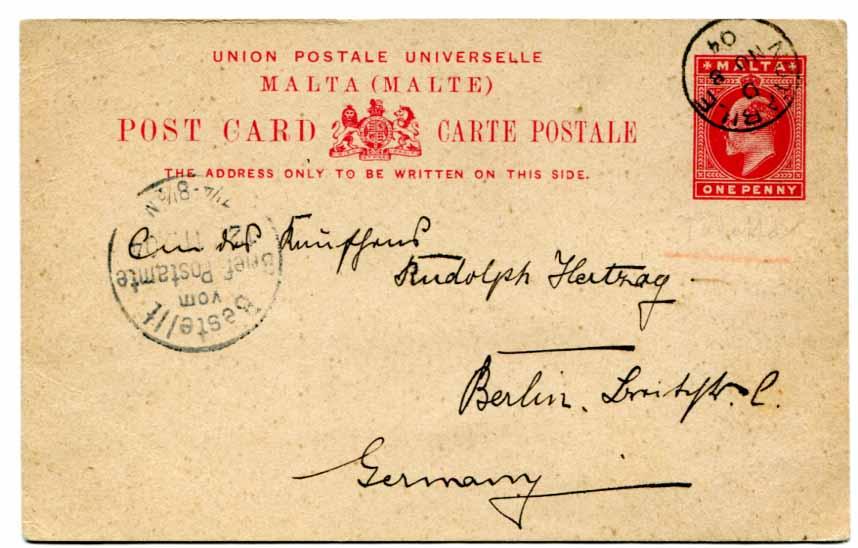 UNION POSTALE UNIVERSELLE
MALTA (MALTE)
POST CARD CARTE POSTALE
THE ADDRESS ONLY TO BE WRITTEN ON THIS SIDE.
MALTA
ONE PENNY
NOTABILE
D
NO 8
04
An das Kaufhaus
Rudolph Hertzog
Berlin. Breitestr. C.
Germany
Bestellt
vom
Brief Postamte
12 11 04